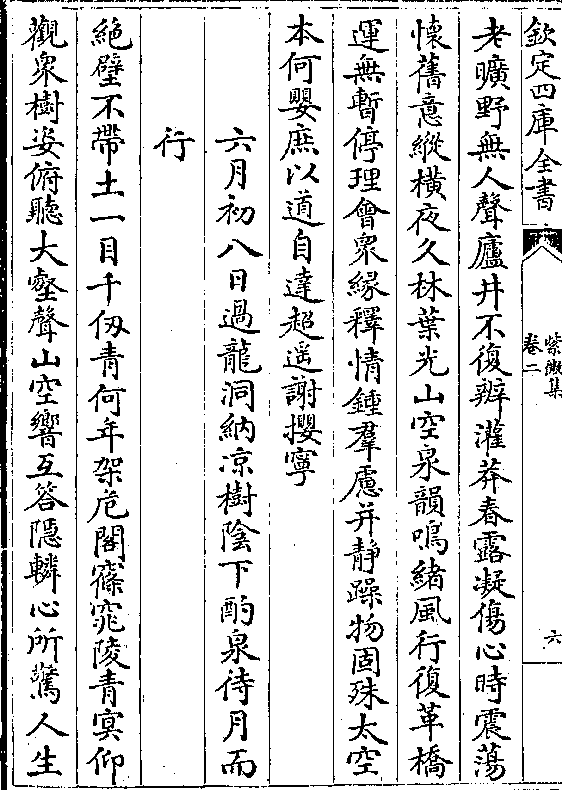 欽定四庫全書
紫微集
卷二
六
老曠野無人聲廬井不復辦灌莽春露凝傷心時震蕩
懷舊意縱橫夜久林葉光山空泉韻鳴緒風行復革橋
運無暫停理會衆緣釋情鍾羣慮并靜躁物固殊太空
本何嬰庶以道自達超遥謝攖寧
六月初八日過龍洞納凉樹陰下酌泉待月而
行
絶壁不帶土一目千仭青何年架危閣窱窕陵青冥仰
觀衆樹姿俯聽大壑聲山空響互答隱轔心所驚人生